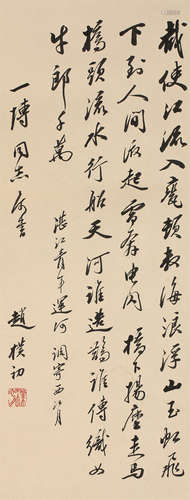 截使江流入麓頓教海浪浮山玉虹飛
下到人間激起雷奔電閃 橋下揚塵走馬
橋頭流水行船天河誰造鵲誰傳織女
牛郎千萬
湛江青年運河 調寄西江月
一博同志屬書
趙樸初